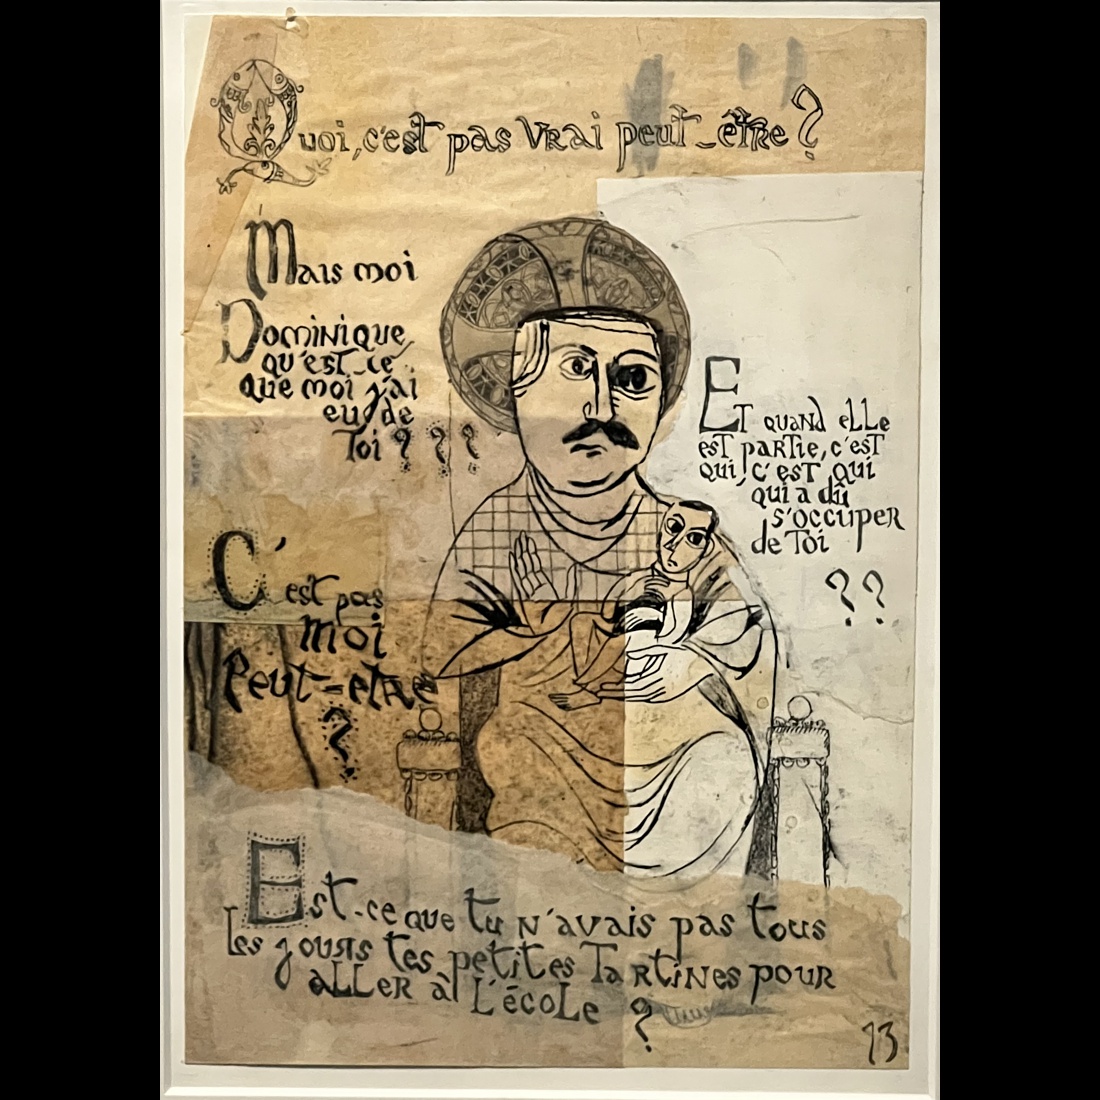 Quoi, c'est pas vrai peut-être ?
Mais moi
Dominique
qu'est-ce
que moi j'ai
eu de
toi ? ? ?
Et quand elle
est partie, c'est
qui, c'est qui
qui a dû
s'occuper
de toi
? ?
C'est pas
moi
peut-être
?
Est-ce que tu n'avais pas tous
les jours tes petites tartines pour
aller à l'école ?
13